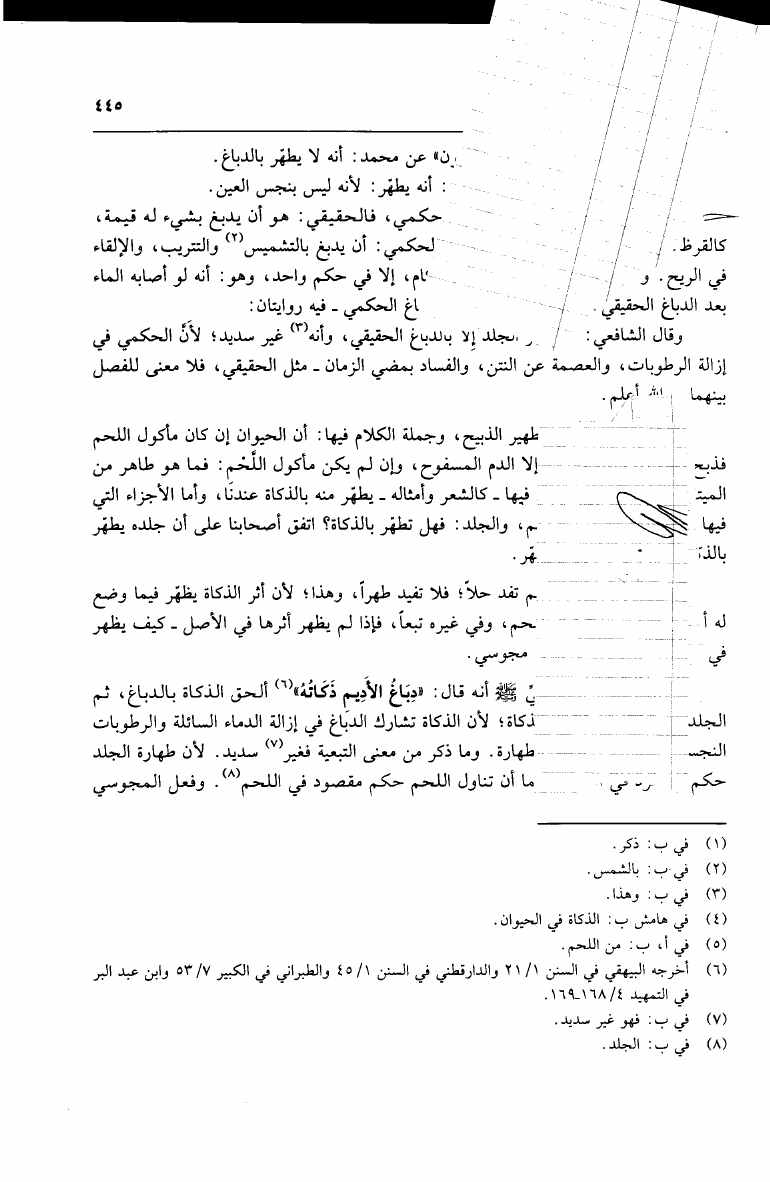 ٤٤٥
عن محمد: أنه لا يطهّر بالدباغ.
: أنه يطهّر: لأنه ليس بنجس العين.
حكمي، فالحقيقي: هو أن يدبغ بشيء له قيمة،
كالقرظ. لحكمي: أن يدبغ بالتشميس(٢) والتتريب، والإلقاء
في الريح. و إلا في حكم واحد، وهو: أنه لو أصابه الماء
بعد الدباغ الحقيقي. الحكمي ـ فيه روايتان:
وقال الشافعي: الجلد إلا بالدباغ الحقيقي، وأنه(٣) غير سديد؛ لأنَّ الحكمي في
إزالة الرطوبات، والعصمة عن النتن، والفساد بمضي الزمان ـ مثل الحقيقي، فلا معنى للفصل
بينهما الله أعلم.
الذبيح، وجملة الكلام فيها: أن الحيوان إن كان مأكول اللحم
فذبح إلا الدم المسفوح، وإن لم يكن مأكول اللَّحْم: فما هو طاهر من
فيها ـ كالشعر وأمثاله ـ يطهّر منه بالذكاة عندنا، وأما الأجزاء التي
فيها والجلد: فهل تطهّر بالذكاة؟ اتفق أصحابنا على أن جلده يطهّر
تفد حلاً؛ فلا تفيد طهراً، وهذا؛ لأن أثر الذكاة يظهّر فيما وضع
له وفي غيره تبعاً، فإذا لم يظهر أثرها في الأصل ـ كيف يظهر
في مجوسي.
ﷺ أنه قال: «دِبَاغُ الأَدِيمِ ذَكَاتُهُ»(٦) ألحق الذكاة بالدباغ، ثم
الجلد لأن الذكاة تشارك الدباغ في إزالة الدماء السائلة والرطوبات
طهارة. وما ذكر من معنى التبعية فغير(٧) سديد. لأن طهارة الجلد
حكم أن تناول اللحم حكم مقصود في اللحم(٨). وفعل المجوسي
(١) في ب: ذكر.
(٢) في ب: بالشمس.
(٣) في ب: وهذا.
(٤) في هامش ب: الذكاة في الحيوان.
(٥) في أ، ب: من اللحم.
(٦) أخرجه البيهقي في السنن ١/ ٢١ والدارقطني في السنن ١/ ٤٥ والطبراني في الكبير ٧/ ٥٣ وابن عبد البر
في التمهيد ٤/ ١٦٨ـ١٦٩.
(٧) في ب: فهو غير سديد.
(٨) في ب: الجلد.